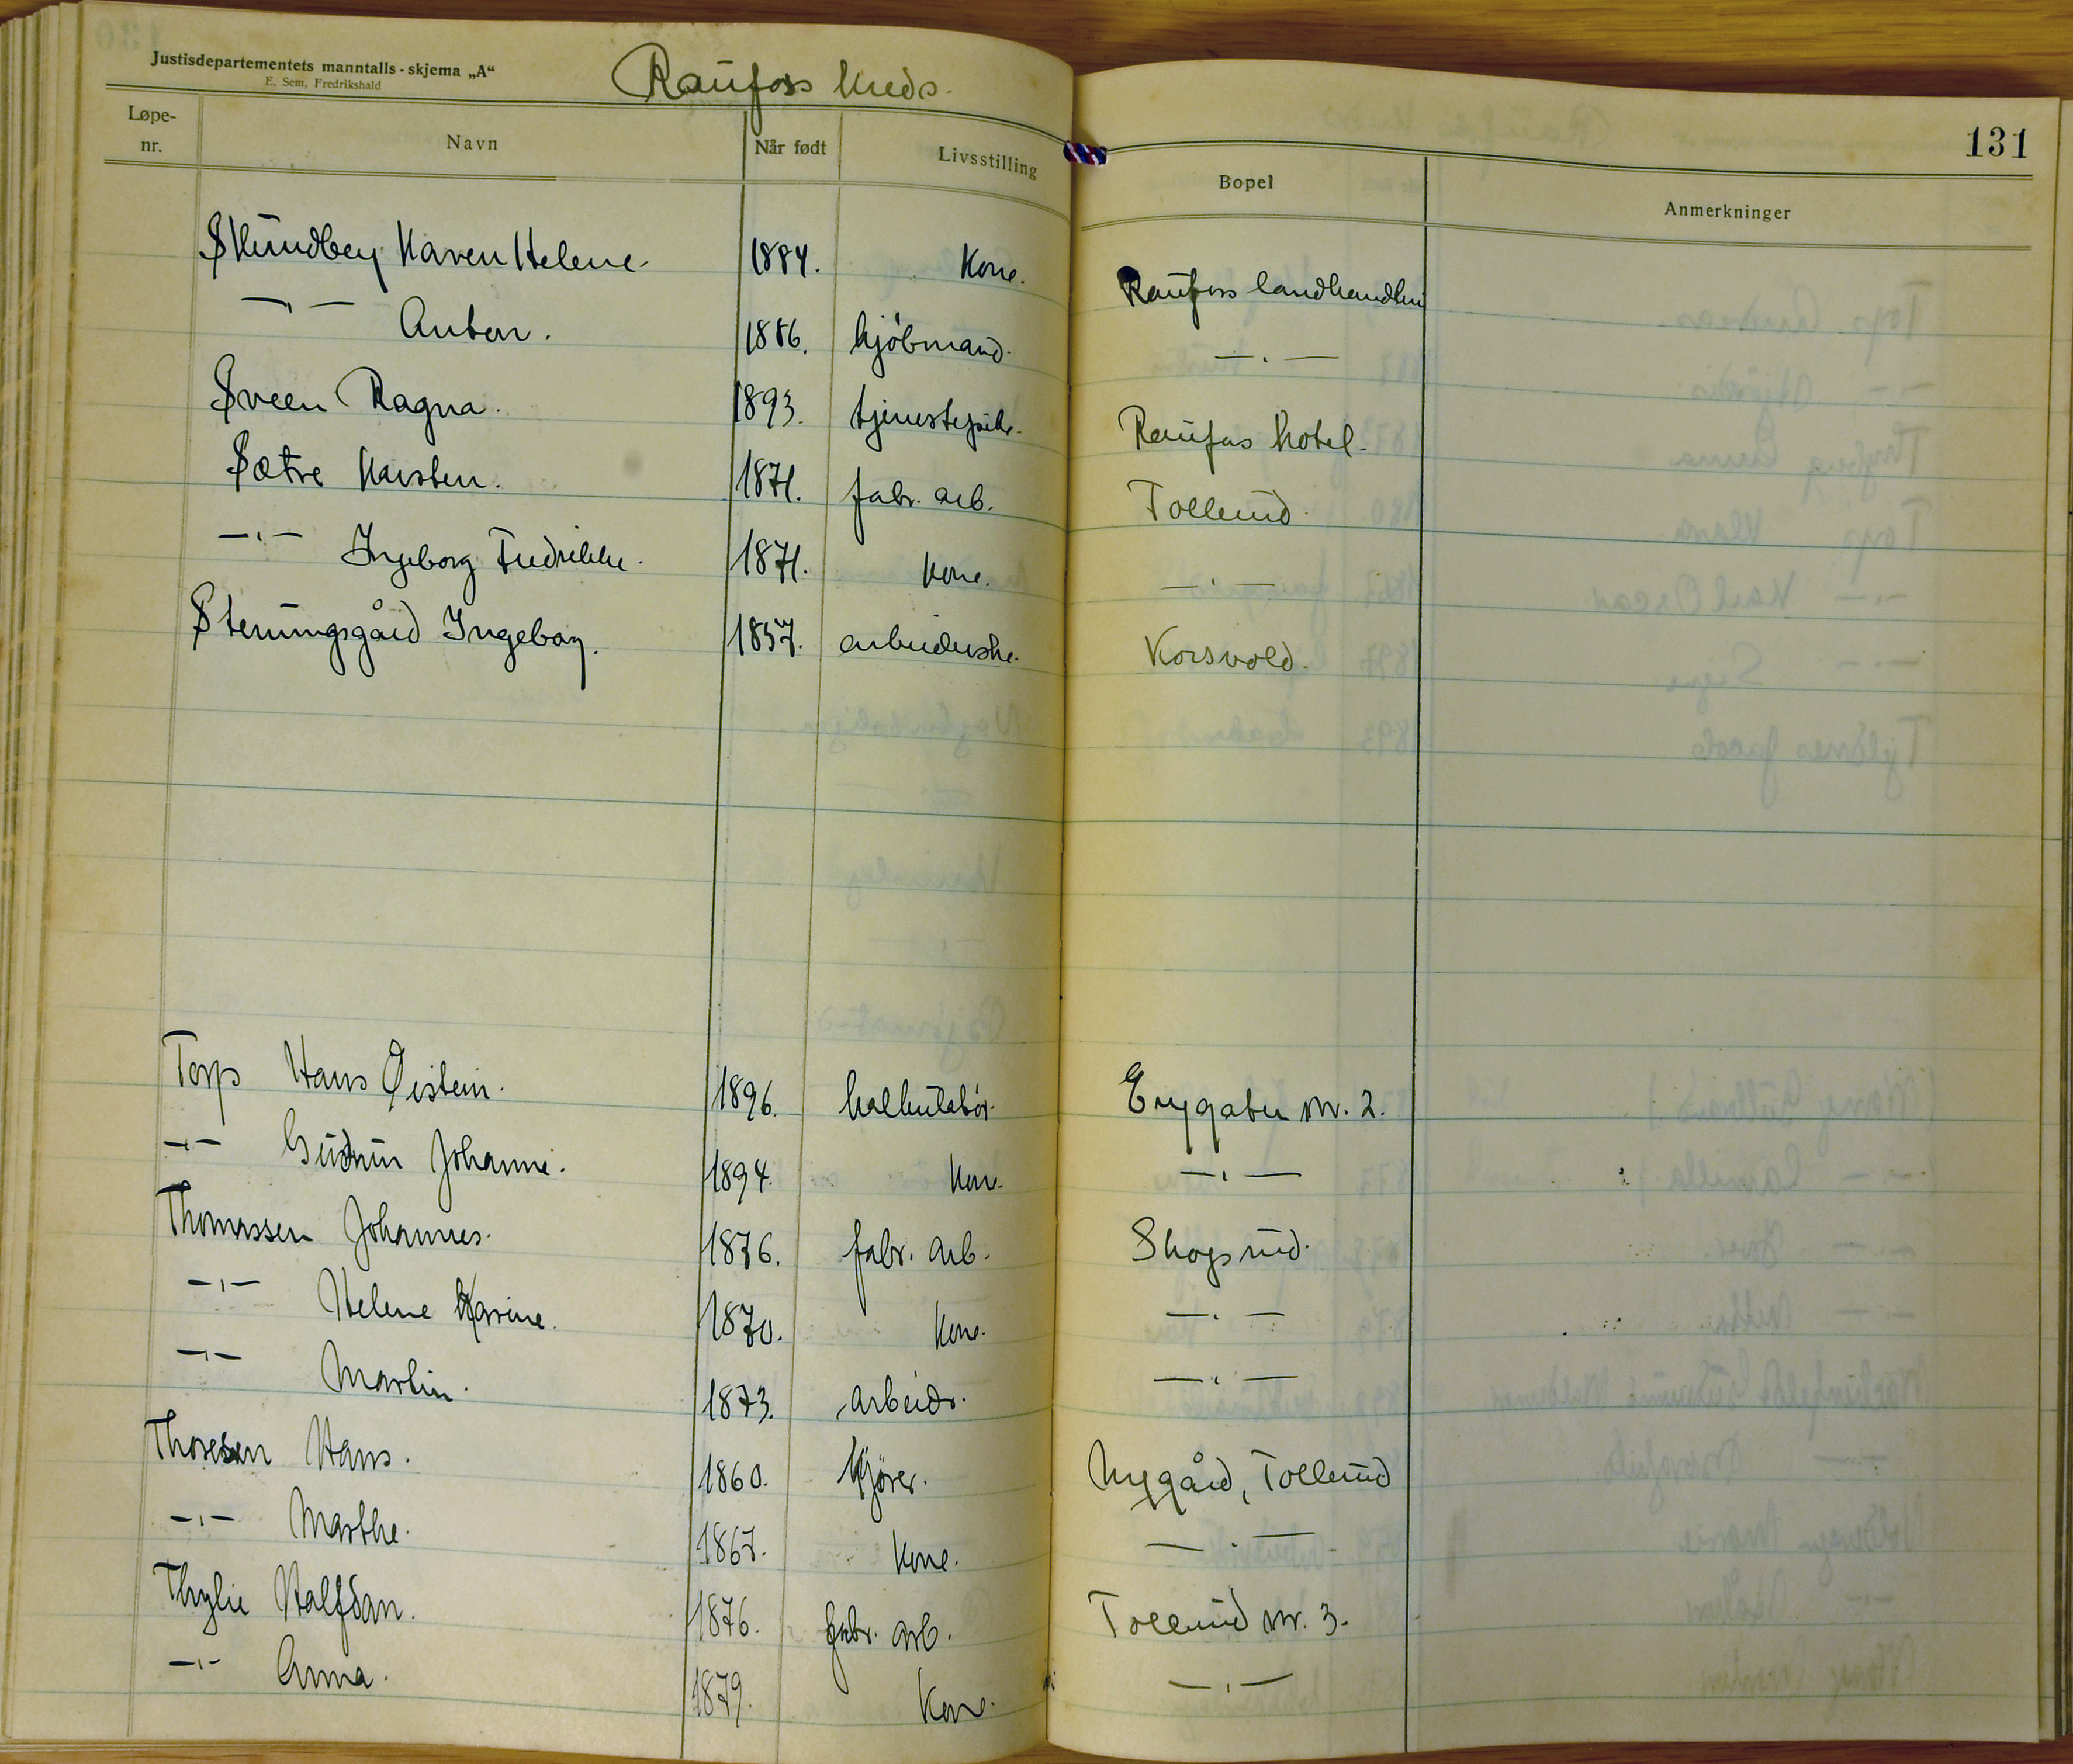 Justisdepartementets manntalls-skjema „A“
E. Sem, Fredrikshald
Raufoss kreds.
131
Løpe-nr. Navn Når født Livsstilling Bopel Anmerkninger
Skundberg Karen Helene. 1884. Kone. Raufoss landhandleri
—"— Anton. 1886. kjøbmand. —"—
Sveen Ragna. 1893. tjenestepike. Raufos hotel.
Sætre Karsten. 1871. fabr. arb. Tollerud.
—"— Ingeborg Fredrikke. 1871. kone. —"—
Steningsgård Ingeborg. 1857. arbeiderske. Korsvold.
Torp Hans Øistein. 1896. Enggaten nr. 2.
—"— Gudrun Johanne. 1894. kone. —"—
Thomassen Johannes. 1876. fabr. arb. Skogsrud.
—"— Helene Karine. 1870. kone. —"—
—"— Martin. 1873. arbeidr. —"—
Thoresen Hans. 1860. Kjører. Nygård, Tollerud
—"— Marthe. 1867. kone. —"—
Thylie Halfdan. 1876. fabr. arb. Tollerud nr. 3.
—"— Anna. 1879. Kone. —"—